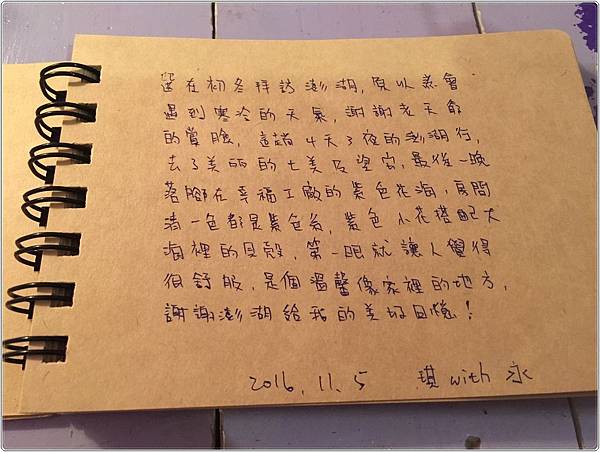 在初冬拜訪澎湖,原以為會
遇到寒冷的天氣,謝謝老天爺
的賞臉,這趟4天3夜的澎湖行,
去了美麗的七美及望安,最後一晚
落腳在幸福工廠的紫色花海,房間
清一色都是紫色系,紫色小花搭配大
海裡的貝殼,第一眼就讓人覺得
很舒服,是個溫馨像家裡的地方,
謝謝澎湖給我的美好回憶!
2016.11.5 琪 with 永